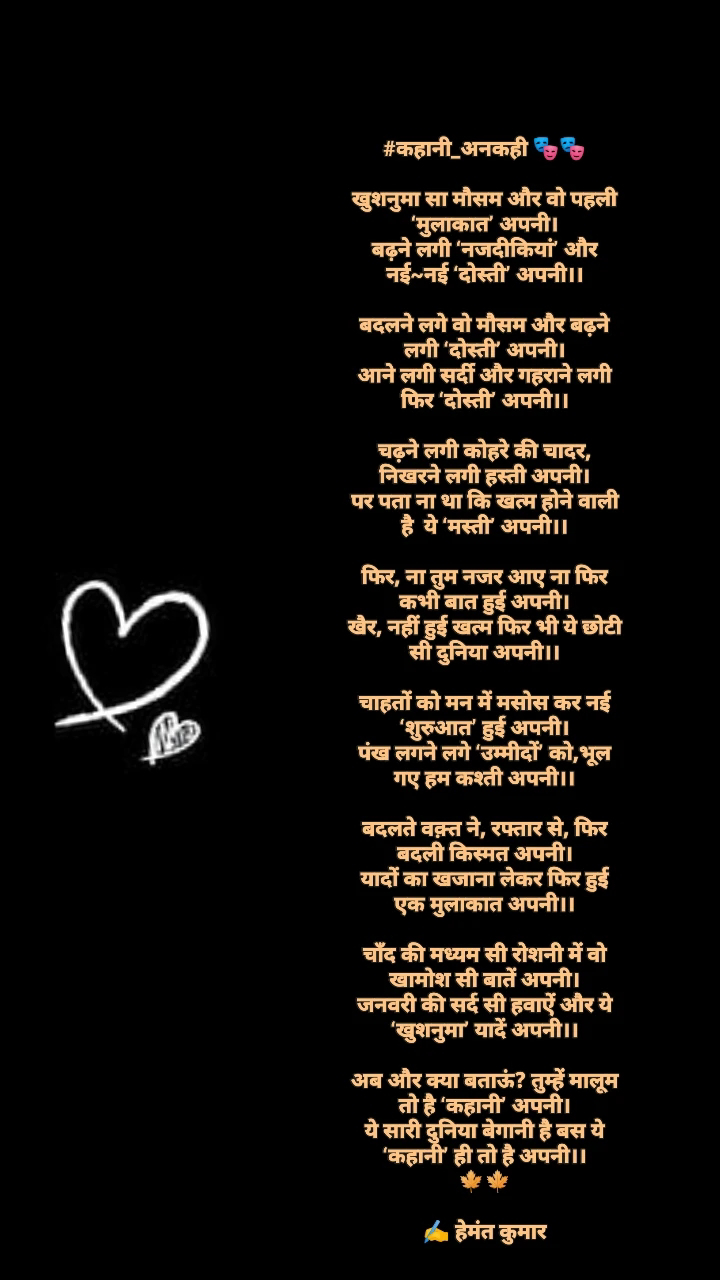 #कहानी_अनकही 🎭🎭
खुशनुमा सा मौसम और वो पहली
‘मुलाकात’ अपनी।
बढ़ने लगी ‘नजदीकियां’ और
नई~नई ‘दोस्ती’ अपनी।।
बदलने लगे वो मौसम और बढ़ने
लगी ‘दोस्ती’ अपनी।
आने लगी सर्दी और गहराने लगी
फिर ‘दोस्ती’ अपनी।।
चढ़ने लगी कोहरे की चादर,
निखरने लगी हस्ती अपनी।
पर पता ना था कि खत्म होने वाली
है  ये ‘मस्ती’ अपनी।।
फिर, ना तुम नजर आए ना फिर
कभी बात हुई अपनी।
खैर, नहीं हुई खत्म फिर भी ये छोटी
सी दुनिया अपनी।।
चाहतों को मन में मसोस कर नई
‘शुरुआत’ हुई अपनी।
पंख लगने लगे ‘उम्मीदों’ को,भूल
गए हम कश्ती अपनी।।
बदलते वक़्त ने, रफ्तार से, फिर
बदली किस्मत अपनी।
यादों का खजाना लेकर फिर हुई
एक मुलाकात अपनी।।
चाँद की मध्यम सी रोशनी में वो
खामोश सी बातें अपनी।
जनवरी की सर्द सी हवाऐं और ये
‘खुशनुमा’ यादें अपनी।।
अब और क्या बताऊं? तुम्हें मालूम
तो है ‘कहानी’ अपनी।
ये सारी दुनिया बेगानी है बस ये
‘कहानी’ ही तो है अपनी।।
🍁🍁
✍️ हेमंत कुमार